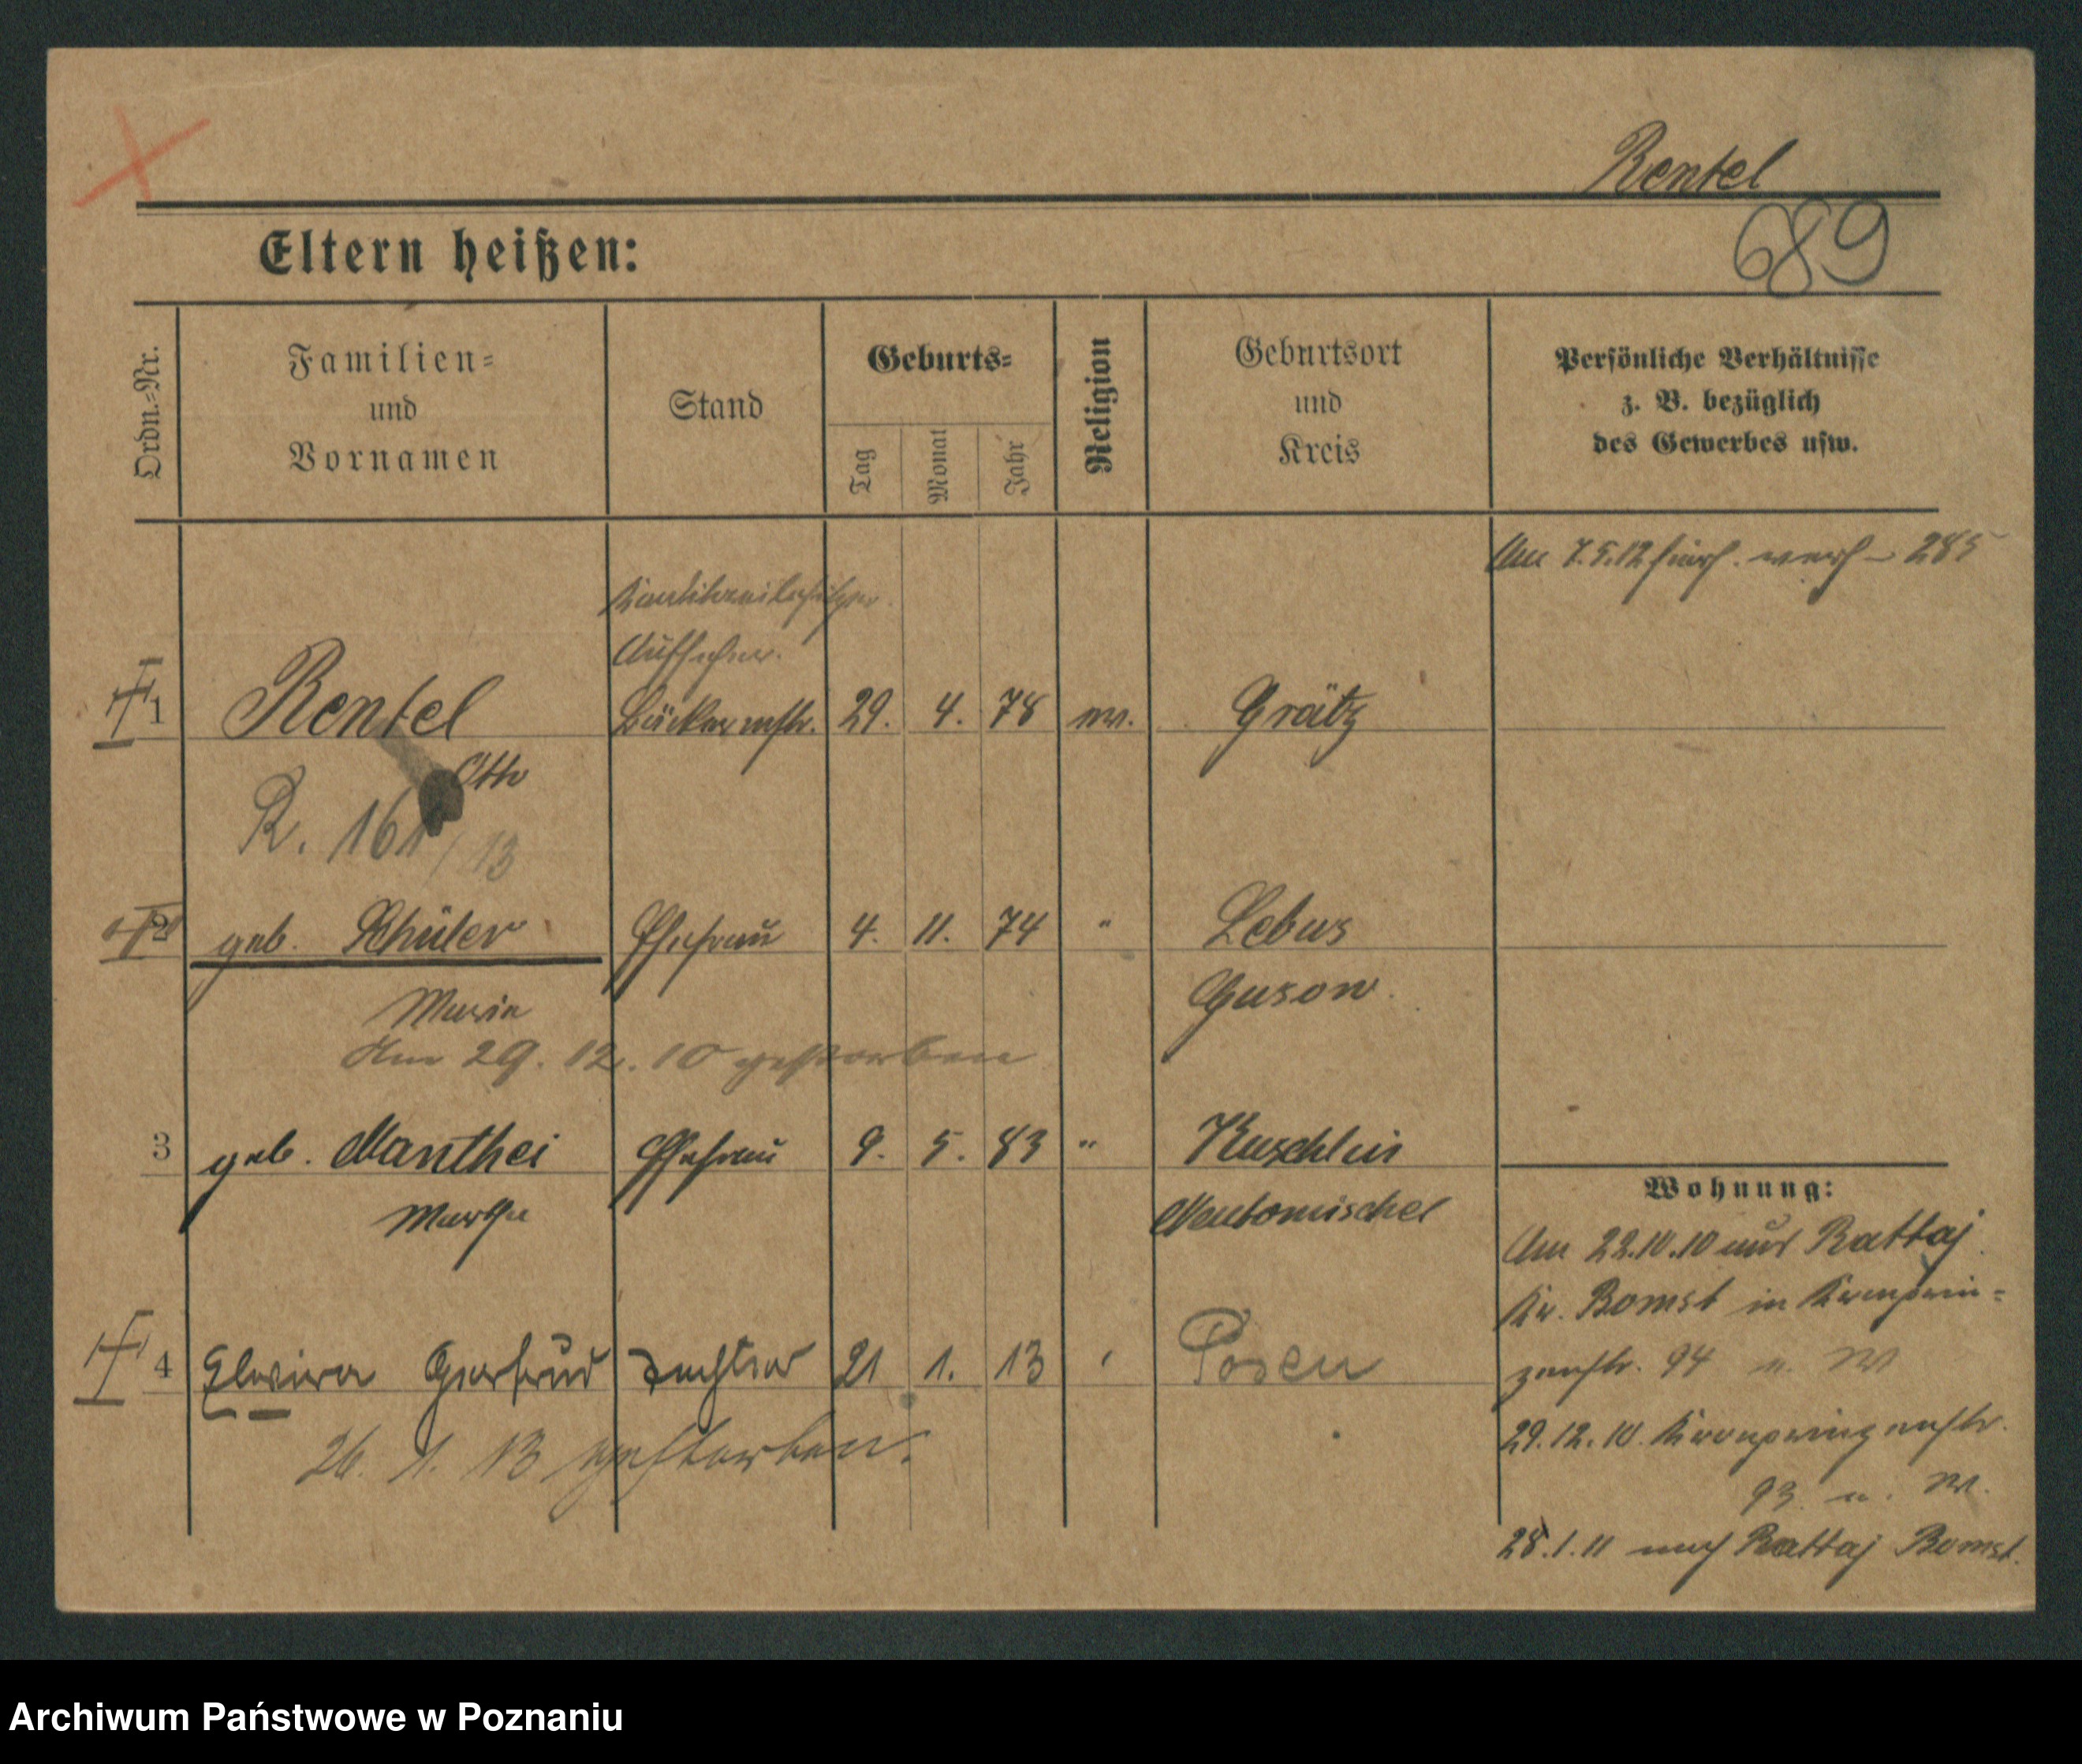 Rentel
689
Eltern heißen:
Ordn.-Nr.
Familien-
und
Vornamen
Stand
Geburts-
Tag
Monat
Jahr
Religion
Geburtsort
und
Kreis
Persönliche Verhältnisse
z. B. bezüglich
des Gewerbes usw.
Am 7.5.12 285
Aufseher.
1 Rentel Bäckermstr. 29. 4. 78 ev. Grätz
Otto
R. 161/13
2 geb. Schüler Ehefrau 4. 11. 74 " Lebus
Maria Gusow
Am 29. 12. 10 gestorben
3 geb. Manthei Ehefrau 9. 5. 83 " Kuschlin
Martha Neutomischel
4 Elwira Gertrud Tochter 21 1. 13 Posen
26. 1. 13 gestorben.
Wohnung:
Am 22.10.10 aus Rattaj
Kr. Bomst in Kronprin-
zenstr. 94 n. W
29.12.10. Kronprinzenstr.
93 n. W.
28.1.11 nach Rattaj Bomst.
Archiwum Państwowe w Poznaniu